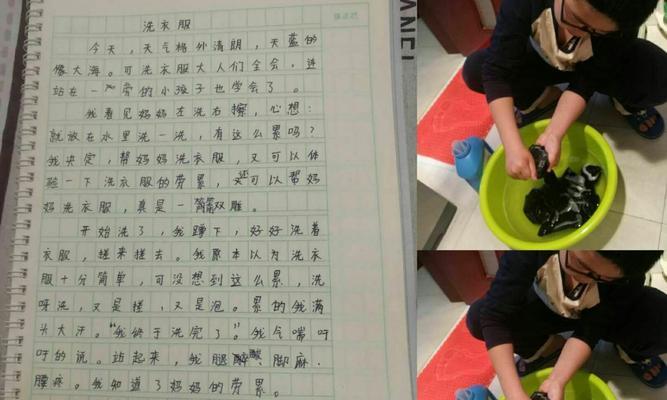 洗衣服
今天，天气格外清朗，天蓝的
像大海。可洗衣服大人们全会，连
站在一旁的小孩子也学会了。
我看见妈妈左洗右擦，心想：
就放在水里洗一洗，有这么累吗？
我决定，帮妈妈洗衣服，又可以体
验一下洗衣服的劳累，还可以帮妈
妈洗衣服，真是一箭双雕。
开始洗了，我蹲下，好好洗着
衣服，搓来搓去。我原本以为洗衣
服十分简单，可没想到这么累，洗
呀洗，又是搓，又是泡。累的我满
头大汗。“我终于洗完了”。我气喘吁
吁的说。站起来，我腿酸、脚麻、
腰疼。我知道了妈妈的劳累。